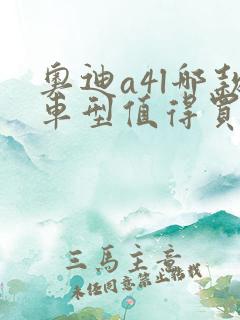 奥迪a4l哪款
車型值得買
三馬主意
未经同意禁止搭栈